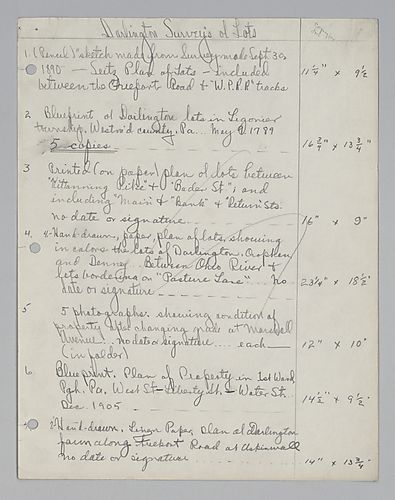 Darlington Surveys of Lots
1. (Pencil) "sketch made from Survey made Sept. 30,
1890 — Seitz Plan of lots — included
between the Freeport Road & "W.P.R.R" tracks 11 1/4" x 9 1/2
2 Blueprint of Darlington lots in Ligonier
township, Westm'd county, Pa... May 9, 1789
5 copies 16 3/4" x 13 3/4"
3 Printed (on paper) plan of lots between
"Kittanning Pike" & "Beder St."; and
including "Main" & "Bank" & "Return" Sts.
no date or signature 16" x 9"
4. Hand-drawn, paper, plan of lots, showing
in colors the lots of Darlington, Orphan,
and Denney. Between Ohio River &
lots bordering on "Pasture Lane" ... No
date or signature 23 1/4" x 18 1/2"
5 5 photographs showing condition of
property after changing grade at
Avenue. No date or signature .... each
(in folder) 12" x 10"
6. Blueprint. Plan of Property in 1st Ward,
Pgh. Pa. West St - Liberty St. - Water St.
Dec. 1905 14 1/2" x 9 1/2"
Hand-drawn, Linen Paper, plan of Darlington
farm along Freeport Road at Aspinwall
no date or signature 14" x 13 3/4"